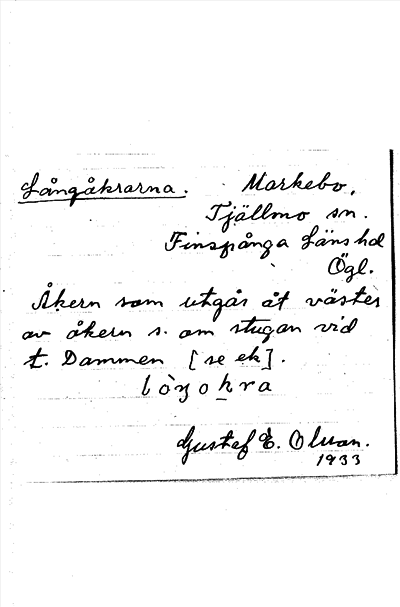 Långåkrarna. Markebo,
Tjällmo sn.
Finspånga Läns hd
Ögl.
Åkern som utgår åt väster
av åkern s. om stugan vid
t. Dammen [se ek].
lòŋokra
Gustef E. Olsson.
1933